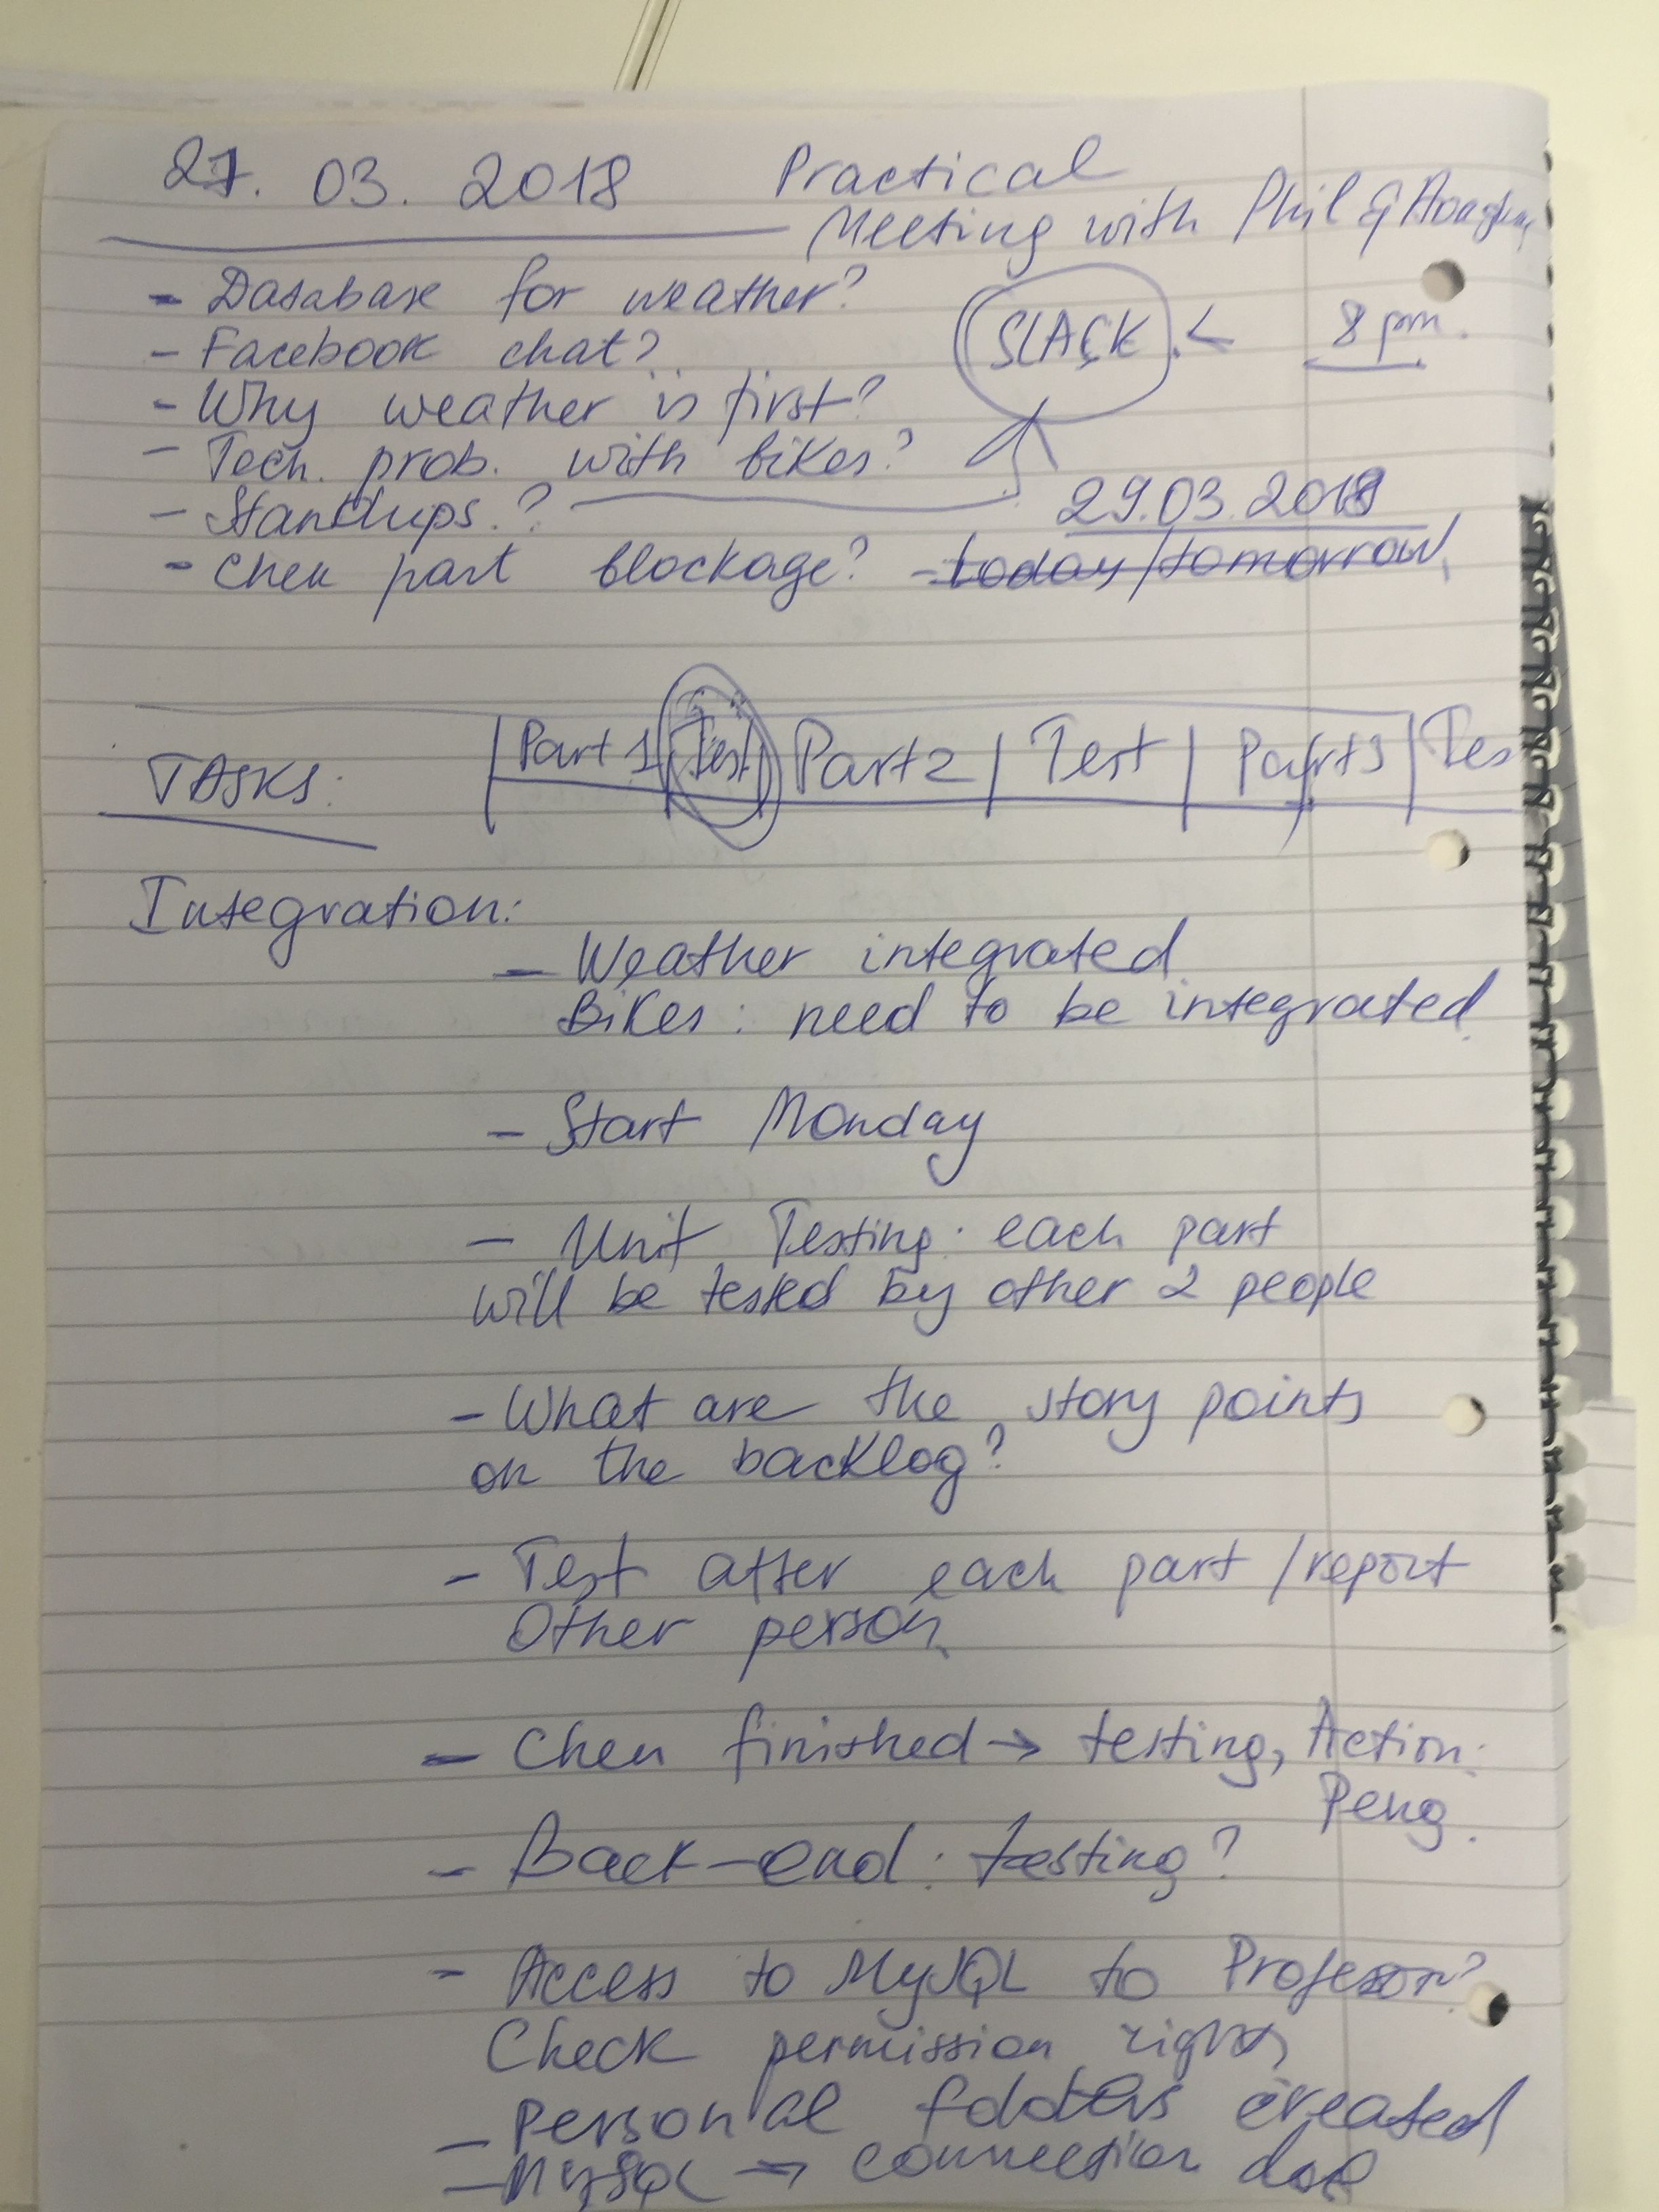 27. 03. 2018 Practical
Meeting with Phil &
- Database for weather?
- Facebook chat? SLACK 8 pm.
- Why weather is first?
- Tech. prob. with bikes?
- Standups.? 29.03.2018
- Chen part blockage? - today/tomorrow
TASKS: | Part 1 | Test | Part 2 | Test | Part 3 | Tes
Integration:
- Weather integrated
Bikes: need to be integrated
- Start Monday
- Unit Testing: each part
will be tested by other 2 people
- What are the story points
on the backlog?
- Test after each part / report
Other person
- Chen finished → testing, Action:
Peng.
- Back-end: testing?
- Access to MySQL to Profesor?
Check permission rights
- Personal folders created
- MySQL → connection